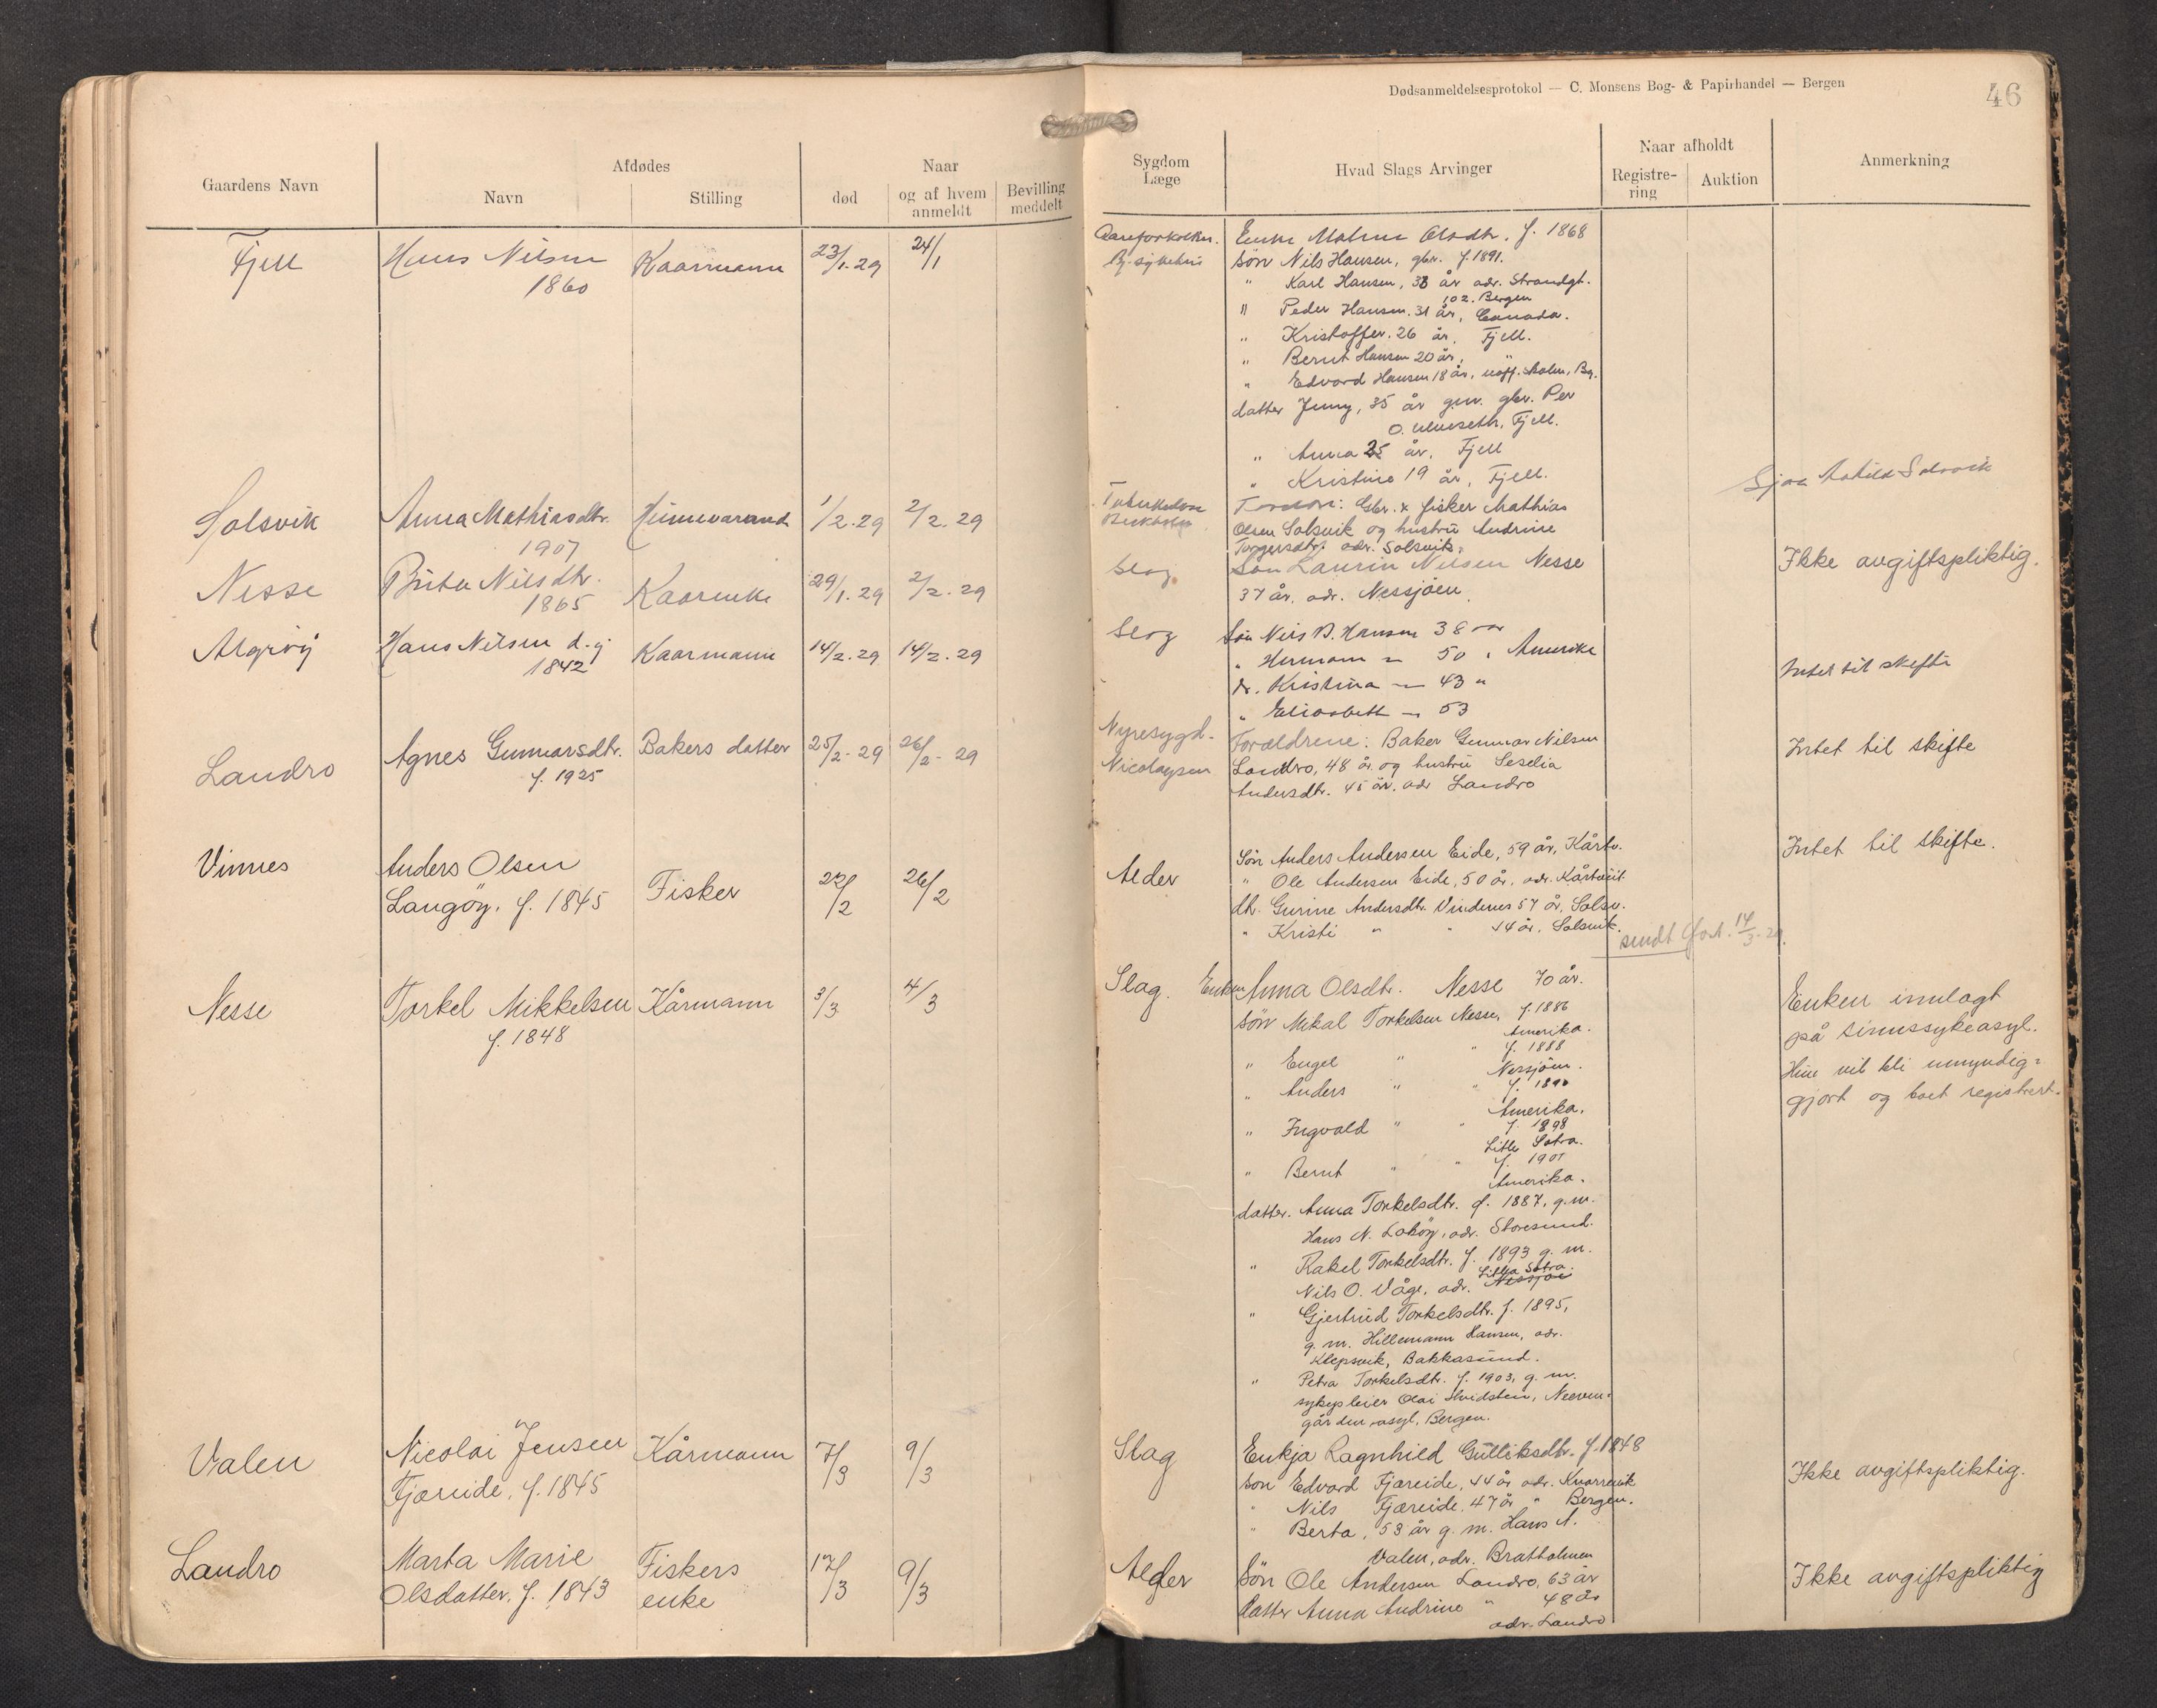 Dødsanmeldelsesprotokol — C. Monsens Bog- & Papirhandel — Bergen
46
Gaardens Navn
Afdødes
Navn
Stilling
Naar
død
og af hvem anmeldt
Bevilling meddelt
Sygdom
Læge
Hvad Slags Arvinger
Naar afholdt
Registre-
ring
Auktion
Anmerkning
Fjell
Hans Nilsen
1860
Kaarmann
23/1-29
24/1
Aareforkalkn.
Bg. sykehus
Enke Malene Olsdtr. f. 1868
søn Nils Hansen, gbr. f. 1891.
" Karl Hansen, 38 år adr. Strandgt.
102. Bergen
" Peder Hansen. 31 år, Canada.
" Kristoffer. 26 år, Fjell.
" Bernt Hansen 20 år, "
" Edvard Hansen 18 år, uoff. skolen, Bg.
datter Jenny, 35 år gm. gbr. Per
O. Ulveseth, Fjell.
" Anna 25 år. Fjell
" Kristine 19 år, Fjell.
Solsvik
Anna Mathiasdtr.
1907
Heimeværand
1/2-29
2/2.29
Tuberkulose
Foreldre: Gbr. & fisker Mathias
Olsen Solsvik og hustru Andrine
Torgersdtr. adr. Solsvik.
Solsvik
Nesse
Brita Nilsdtr.
1865
Kaarenke
29/1.29
2/2.29
Slag
Søn Laurin Nilsen Nesse
37 år. adr. Nessjøen.
Ikke avgiftspliktig.
Algrøy
Hans Nilsen d.y
1842
Kaarmann
14/2.29
14/2.29
Slag
Søn Nils B. Hansen 38 aar
" Hermann — 50 " Amerika
dr. Kristina — 43 "
" Elisabeth — 53
Intet til skifte
Landro
Agnes Gunnarsdtr.
f. 1925
Bakers datter
25/2-29
26/2-29
Nyresygd-
Nicolaysen
Foreldrene: Baker Gunnar Nilsen
Landro, 48 år og hustru Seselia
Andersdtr. 45 år. adr Landro
Intet til skifte
Vinnes
Anders Olsen
Langøy. f. 1845
Fisker
22/2
26/2
Alder
Søn Anders Andersen Eide, 59 år, Kårtv.
" Ole Andersen Eide, 50 år, adr. Kårtveit
dtr. Gurine Andersdtr. Vindenes 57 år, Solsv.
" Kristi " " 44 år. Solsvik.
sendt 14/3-29.
Intet til skifte.
Nesse
Torkel Mikkelsen
f. 1848
Kårmann
3/3
4/3
Slag.
Enken Anna Olsdtr. Nesse 70 år.
søn Mikal Torkelsen Nesse, f. 1886
Amerika.
" Engel " " f. 1888
Nessjøen.
" Anders " " f. 1890
Amerika.
" Ingvald " " f. 1898
Litle Sotra.
" Bernt " " f. 1901
Amerika.
datter. Anna Torkelsdtr. f. 1887, g.m.
Hans N. Lokøy, adr. Storesund.
" Rakel Torkelsdtr. f. 1893 g. m.
Nils O. Våge, adr. Nessjøe Litle Sotra.
" Gjertrud Torkelsdtr. f. 1895,
g. m. Hillemann Hansen, adr.
Klepsvik, Bakkasund.
" Petra Torkelsdtr. f. 1903, g. m.
sykepleier Olai Hvidsten, Neeven-
gården asyl, Bergen.
Enken innlagt
på sinnssykeasyl.
Hun vil bli umyndig-
gjort og boet registrert.
Valen
Nicolai Jensen
Fjæreide, f. 1845
Kårmann
7/3
9/3
Slag
Enkja Ragnhild Gulliksdtr. f. 1848
søn Edvard Fjæreide, 44 år adr. Knarrevik
" Nils Fjæreide. 47 år " Bergen.
" Berta, 53 år g. m. Hans A.
Valen, adr. Brattholmen
Ikke avgiftspliktig.
Landro
Marta Marie
Olsdatter, f. 1843
Fiskers
enke
9/3
Alder
Søn Ole Andersen Landro, 63 år
datter Anna Andrine " 48 år
adr. Landro
Ikke avgiftspliktig